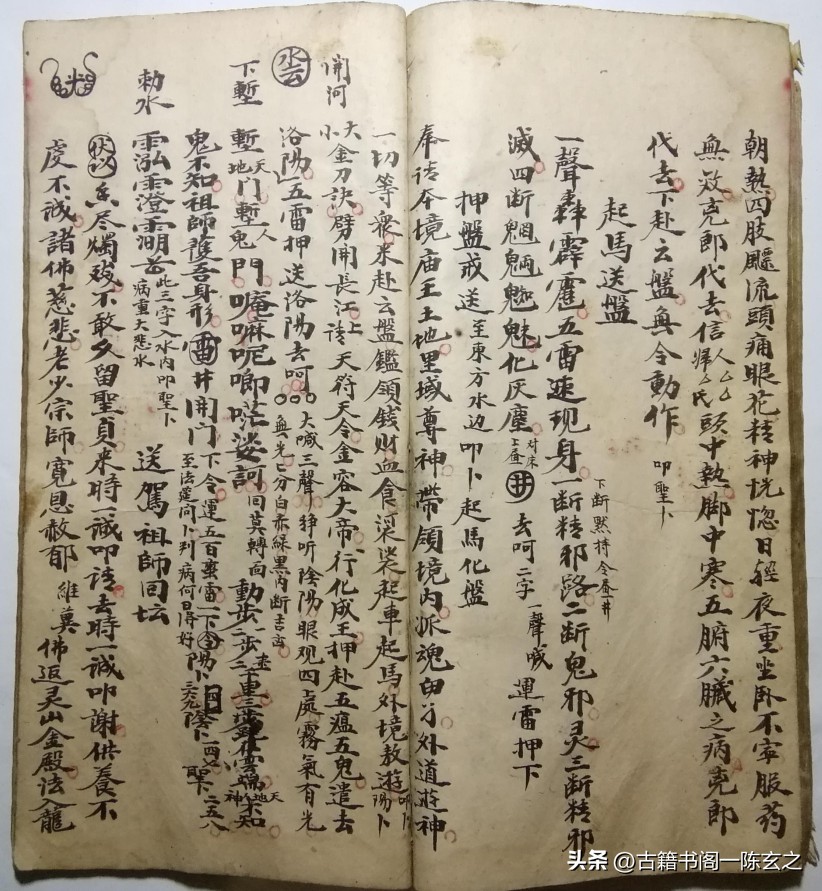 朝熱四肢飄流頭痛眼花精神恍惚日輕夜重坐卧不寧服药
無效克郎代去信人厶厶歸厶氏頭中熱脚中寒五腑六臟之病克郎
代去下赴云盤無令動作 叩聖卜
起馬送盤
下断黙持令昼一井
一聲轟霹靂五雷速现身一断精邪路二断鬼邪灵三断精邪
滅四断魍魎魑魅化灰塵对床上昼井去呵二字一聲喊運雷押下
押盤或送至東方水边叩卜起馬化盤
奉请本境庙王土地里域尊神帶領境内孤魂外道遊神
一切等衆来赴云盤鑑領錢财血食起車起馬外境教遊陽卜
開河 大小金刀訣劈開長江上请天符天令金容大帝行化成王押赴五瘟五鬼遣去
水云 洛陽五雷押送洛陽去呵 大喊三聲静听陰陽眼观四處霧氣有光無光已分白赤綠黑内断吉凶
下塹 塹天地門塹人鬼門唵嘛呢唧娑訶回莫轉向動步二步三步雲端天地神不知
鬼不知祖師護吾身形雷井開门下令運五百蛮雷一下令陽卜三六九陰卜一四七聖卜二五八至法筵问卜判病何日得好
勅水 此三字入水内叩聖卜病重大悲水 送駕祖師回坛
伏以香尽燭残不敢久留聖真来時一诚叩请去時一诚叩謝供養不
虔不诚諸佛慈悲老少宗師寬恩赦郁 維莫 佛返灵山金殿法入龍
头条 @古籍书阁一陈玄之